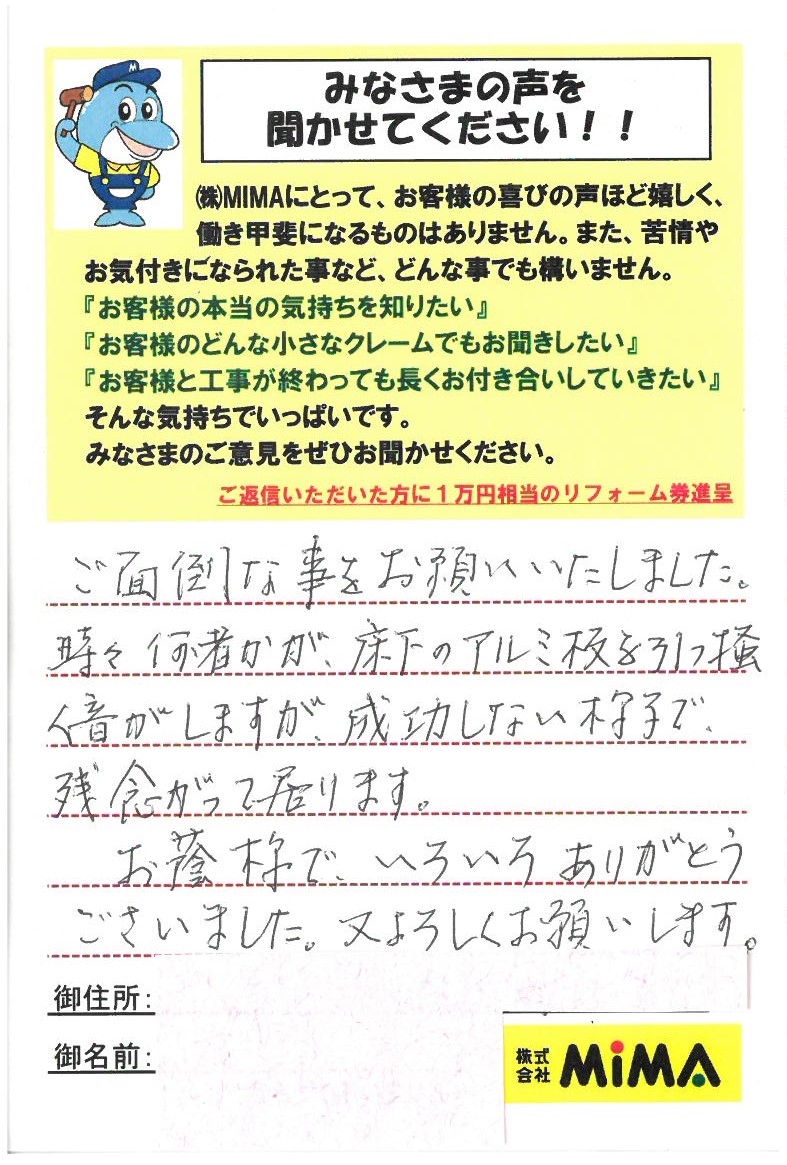 M
みなさまの声を
聞かせてください！！
㈱MIMAにとって、お客様の喜びの声ほど嬉しく、
働き甲斐になるものはありません。また、苦情や
お気付きになられた事など、どんな事でも構いません。
『お客様の本当の気持ちを知りたい』
『お客様のどんな小さなクレームでもお聞きしたい』
『お客様と工事が終わっても長くお付き合いしていきたい』
そんな気持ちでいっぱいです。
みなさまのご意見をぜひお聞かせください。
ご返信いただいた方に１万円相当のリフォーム券進呈
ご面倒な事をお願いいたしました。
時々何者かが、床下のアルミ板を引っ掻
く音がしますが、成功しない様子で、
残念がって居ります。
お蔭様で、いろいろありがとう
ございました。又よろしくお願いします。
御住所：
御名前：
株式会社 MiMA